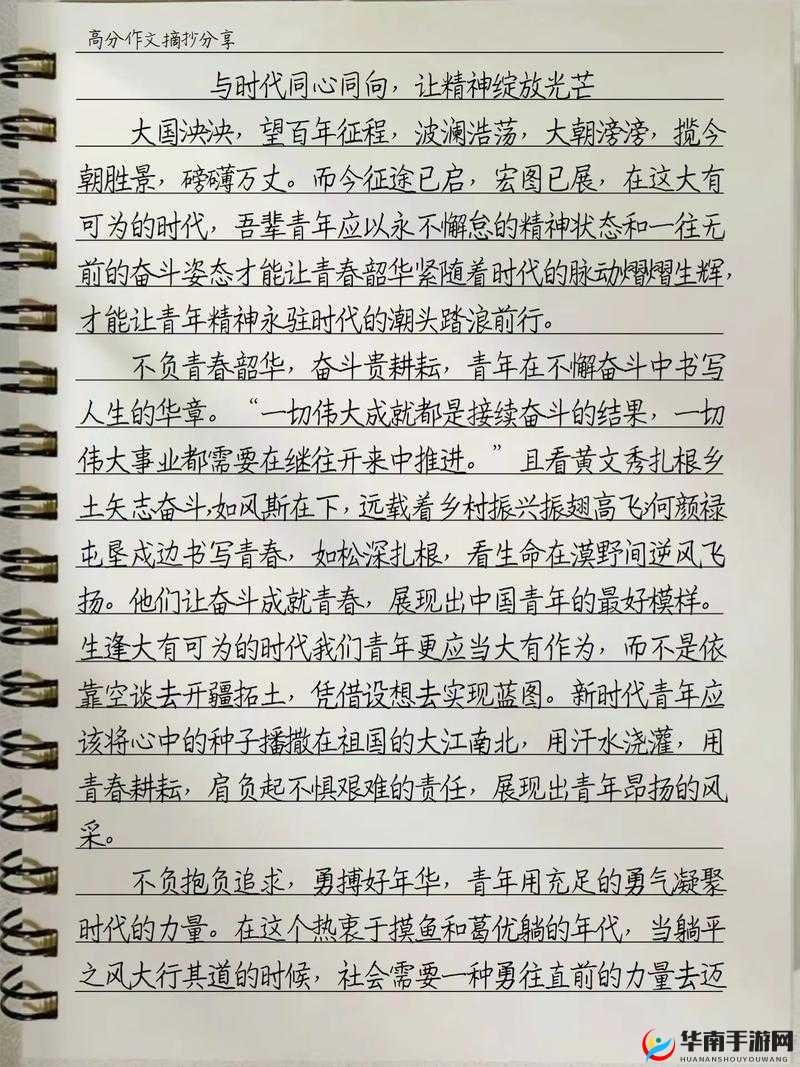 高分作文摘抄分享
与时代同心同向，让精神绽放光芒
大国泱泱，望百年征程，波澜浩荡，大朝滂滂，揽今
朝胜景，磅礴万丈。而今征途已启，宏图已展，在这大有
可为的时代，吾辈青年应以永不懈怠的精神状态和一往无
前的奋斗姿态才能让青春韶华紧随着时代的脉动熠熠生辉，
才能让青年精神永驻时代的潮头踏浪前行。
不负青春韶华，奋斗贵耕耘，青年在不懈奋斗中书写
人生的华章。“一切伟大成就都是接续奋斗的结果，一切
伟大事业都需要在继往开来中推进。”且看黄文秀扎根乡
土矢志奋斗，如风斯在下，远载着乡村振兴振翅高飞；何颜禄
屯垦戍边书写青春，如松深扎根，看生命在漠野间逆风飞
扬。他们让奋斗成就青春，展现出中国青年的最好模样。
生逢大有可为的时代我们青年更应当大有作为，而不是依
靠空谈去开疆拓土，凭借设想去实现蓝图。新时代青年应
该将心中的种子播撒在祖国的大江南北，用汗水浇灌，用
青春耕耘，肩负起不惧艰难的责任，展现出青年昂扬的风
采。
不负抱负追求，勇搏好年华，青年用充足的勇气凝聚
时代的力量。在这个热衷于摸鱼和葛优躺的年代，当躺平
之风大行其道的时候，社会需要一种勇往直前的力量去迈
华南手游网
HUANANSHOUYOUWANG